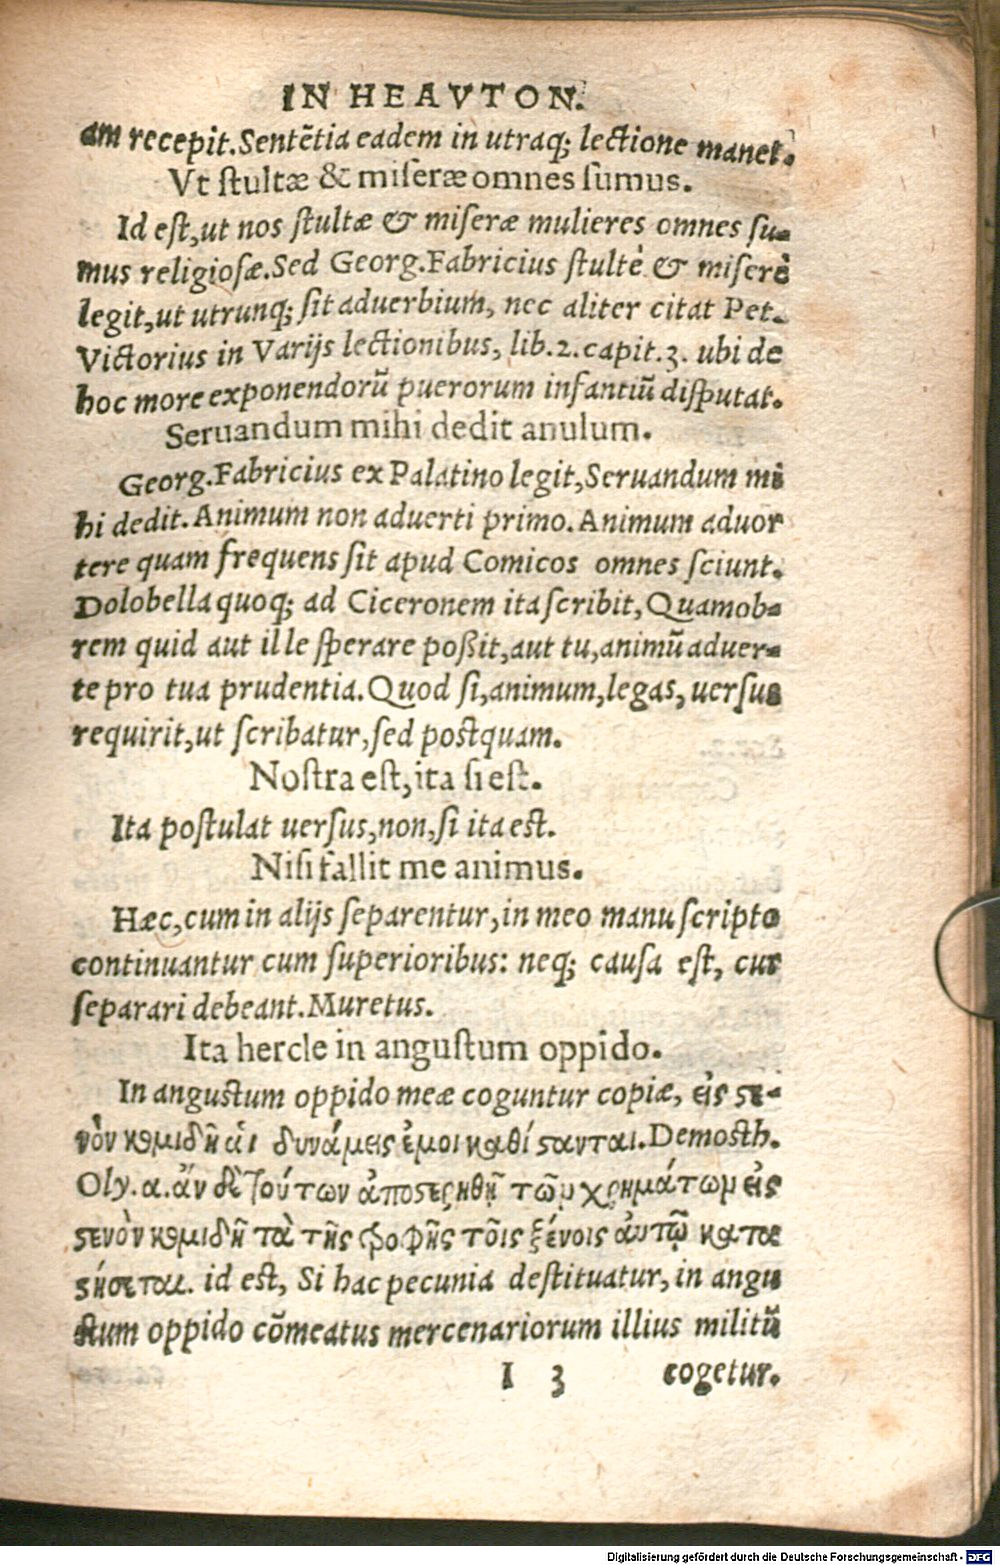 IN HEAVTON.
am recepit. Sentẽtia eadem in utraq; lectione manet.
Vt stultæ & miseræ omnes sumus.
Id est, ut nos stultæ & miseræ mulieres omnes su-
mus religiosæ. Sed Georg. Fabricius stultè & miserè
legit, ut utrunq; sit aduerbium, nec aliter citat Pet.
Victorius in Varijs lectionibus, lib. 2. capit. 3. ubi de
hoc more exponendorũ puerorum infantiũ disputat.
Seruandum mihi dedit anulum.
Georg. Fabricius ex Palatino legit, Seruandum mi
hi dedit. Animum non aduerti primo. Animum aduor
tere quam frequens sit apud Comicos omnes sciunt.
Dolobella quoq; ad Ciceronem ita scribit, Quamob-
rem quid aut ille sperare poßit, aut tu, animũ aduer-
te pro tua prudentia. Quod si, animum, legas, uersus
requirit, ut scribatur, sed postquam.
Nostra est, ita si est.
Ita postulat uersus, non, si ita est.
Nisi fallit me animus.
Hæc, cum in alijs separentur, in meo manuscripto
continuantur cum superioribus: neq; causa est, cur
separari debeant. Muretus.
Ita hercle in angustum oppido.
In angustum oppido meæ coguntur copiæ, εἰς στε-
νὸν κομιδῆ αἱ δυνάμεις ἐμοι καθίσανται. Demosth.
Oly. α. ἂν δὲ τούτων ἀποστερηθῇ τῶν χρημάτων εἰς
στενὸν κομιδῆ τὰ τῆς τροφῆς τοῖς ξένοις αὐτῷ κατα
στήσεται. id est, Si hac pecunia destituatur, in angu
stum oppido cõmeatus mercenariorum illius militũ
I 3 cogetur.
Digitalisierung gefördert durch die Deutsche Forschungsgemeinschaft - DFG